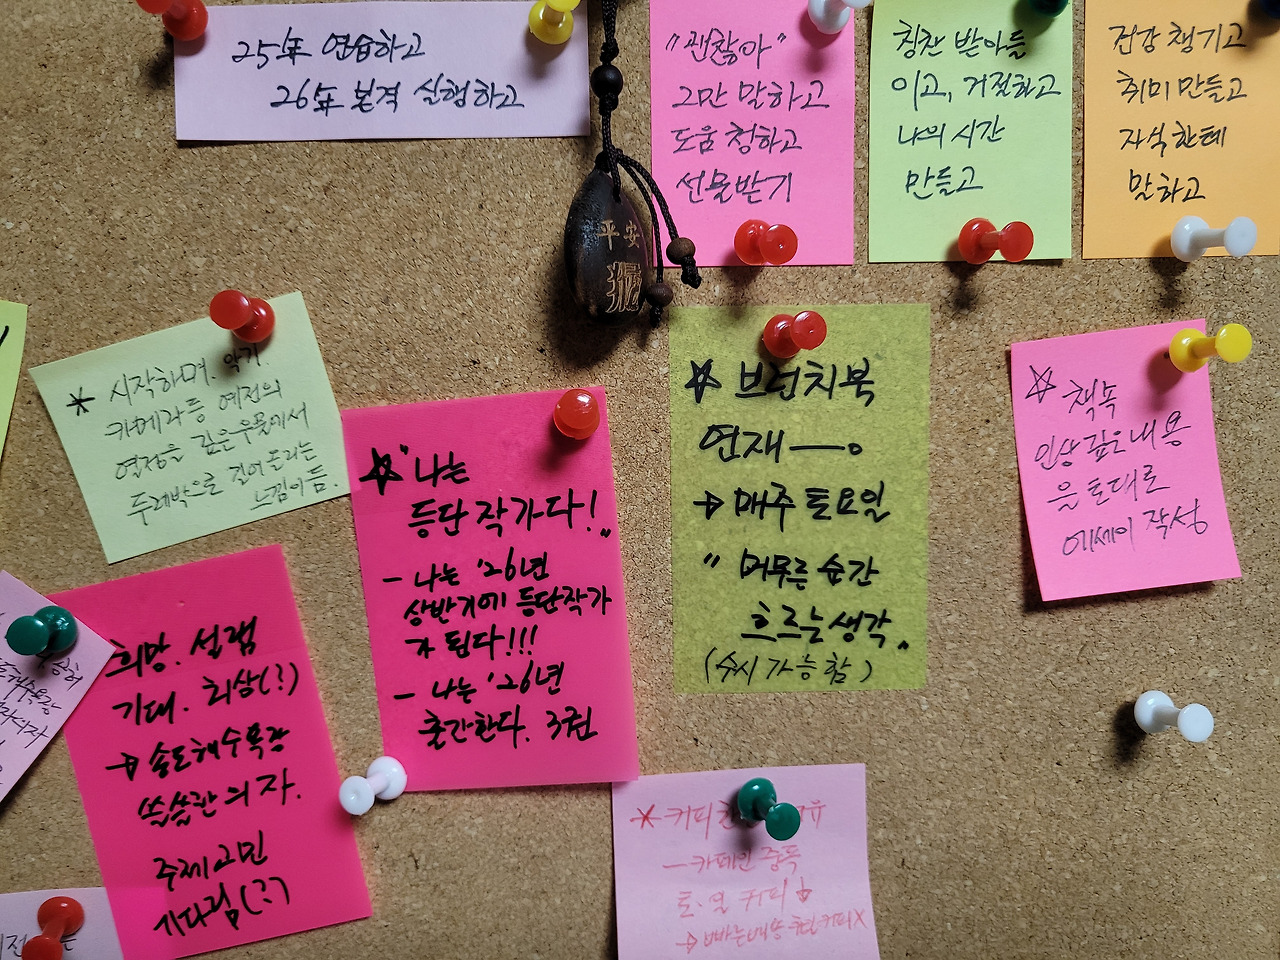 25年 연습하고
26年 본격 실험하고
"괜찮아"
그만 말하고
도움 청하고
선물받기
칭찬 받아들
이고, 거절하고
나의 시간
만들고
건강 챙기고
취미 만들고
자식한테
말하고
平安
* 시작하며. 악기.
카메라 등 예전의
열정을 깊은 우물에서
두레박으로 길어 올리는
느낌이 듦.
☆ "나는
등단 작가다!"
- 나는 '26년
상반기에 등단작가
가 된다!!!
- 나는 '26년
출간한다. 3권
☆ 브런치북
연재
→ 매주 토요일
"머무른 순간
흐르는 생각"
(수시 가능함)
☆ 책속
인상 깊은 내용
을 토대로
에세이 작성
희망. 설렘
기대. 회상(?)
→ 송도해수욕장
쓸쓸한 의자.
주제 고민
기다림(?)
* 커피
- 카페인 중독
토·일 커피 ↓